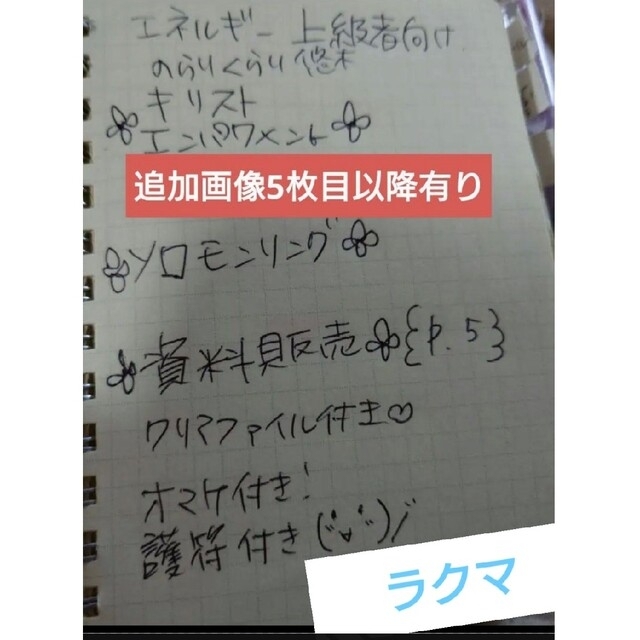 エネルギー 上級者向け
のらりくらり悠木
キリスト
エンパワメント
追加画像5枚目以降有り
ソロモンリング
資料販売 {p.5}
クリアファイル付き♡
オマケ付き!
護符付き
ラクマ